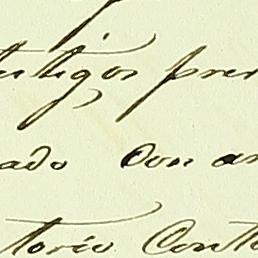 testigos pres
ado Don an
torio Conta